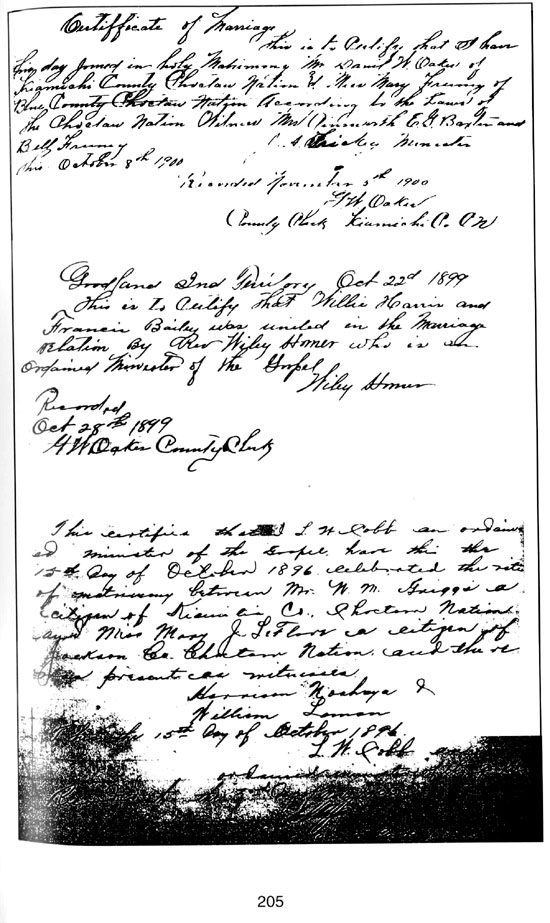 Certifficate of Marriage
This is to Certify that I have
this day joined in holy Matrimony Mr David W. Oakes of
Kiamichi County Choctaw Nation & Miss Mary Freeny of
Blue County Choctaw Nation According to the Laws of
the Choctaw Nation Witness Mrs E. G. Baxter and
Bell Freeny Minister
this October 8th 1900
Recorded November 5th 1900
G W. Oakes
County Clerk Kiamichi Co. C N
Goodland Ind Territory Oct 22d 1899
This is to Certify that Willie Harris and
Francis Bailey was united in the marriage
relation by Rev Wiley Homer who is an
Ordained Minister of the Gospel
Wiley Homer
Recorded
Oct 28th 1899
G W Oakes County Clerk
This certifies that I L W Cobb an ordain
ed minister of the Gospel have this the
15th day of October 1896 celebrated the rite
of matrimony between Mr. W. M. Griggs a
citizen of Kiamitia Co., Choctaw Nation
and Miss Mary J. LeFlore a citizen of
Jackson Co. Choctaw Nation and there
present as witnesses
Harrison Noahaya &
William Loman
15th day of October 1896.
L. W. Cobb
ordained
205